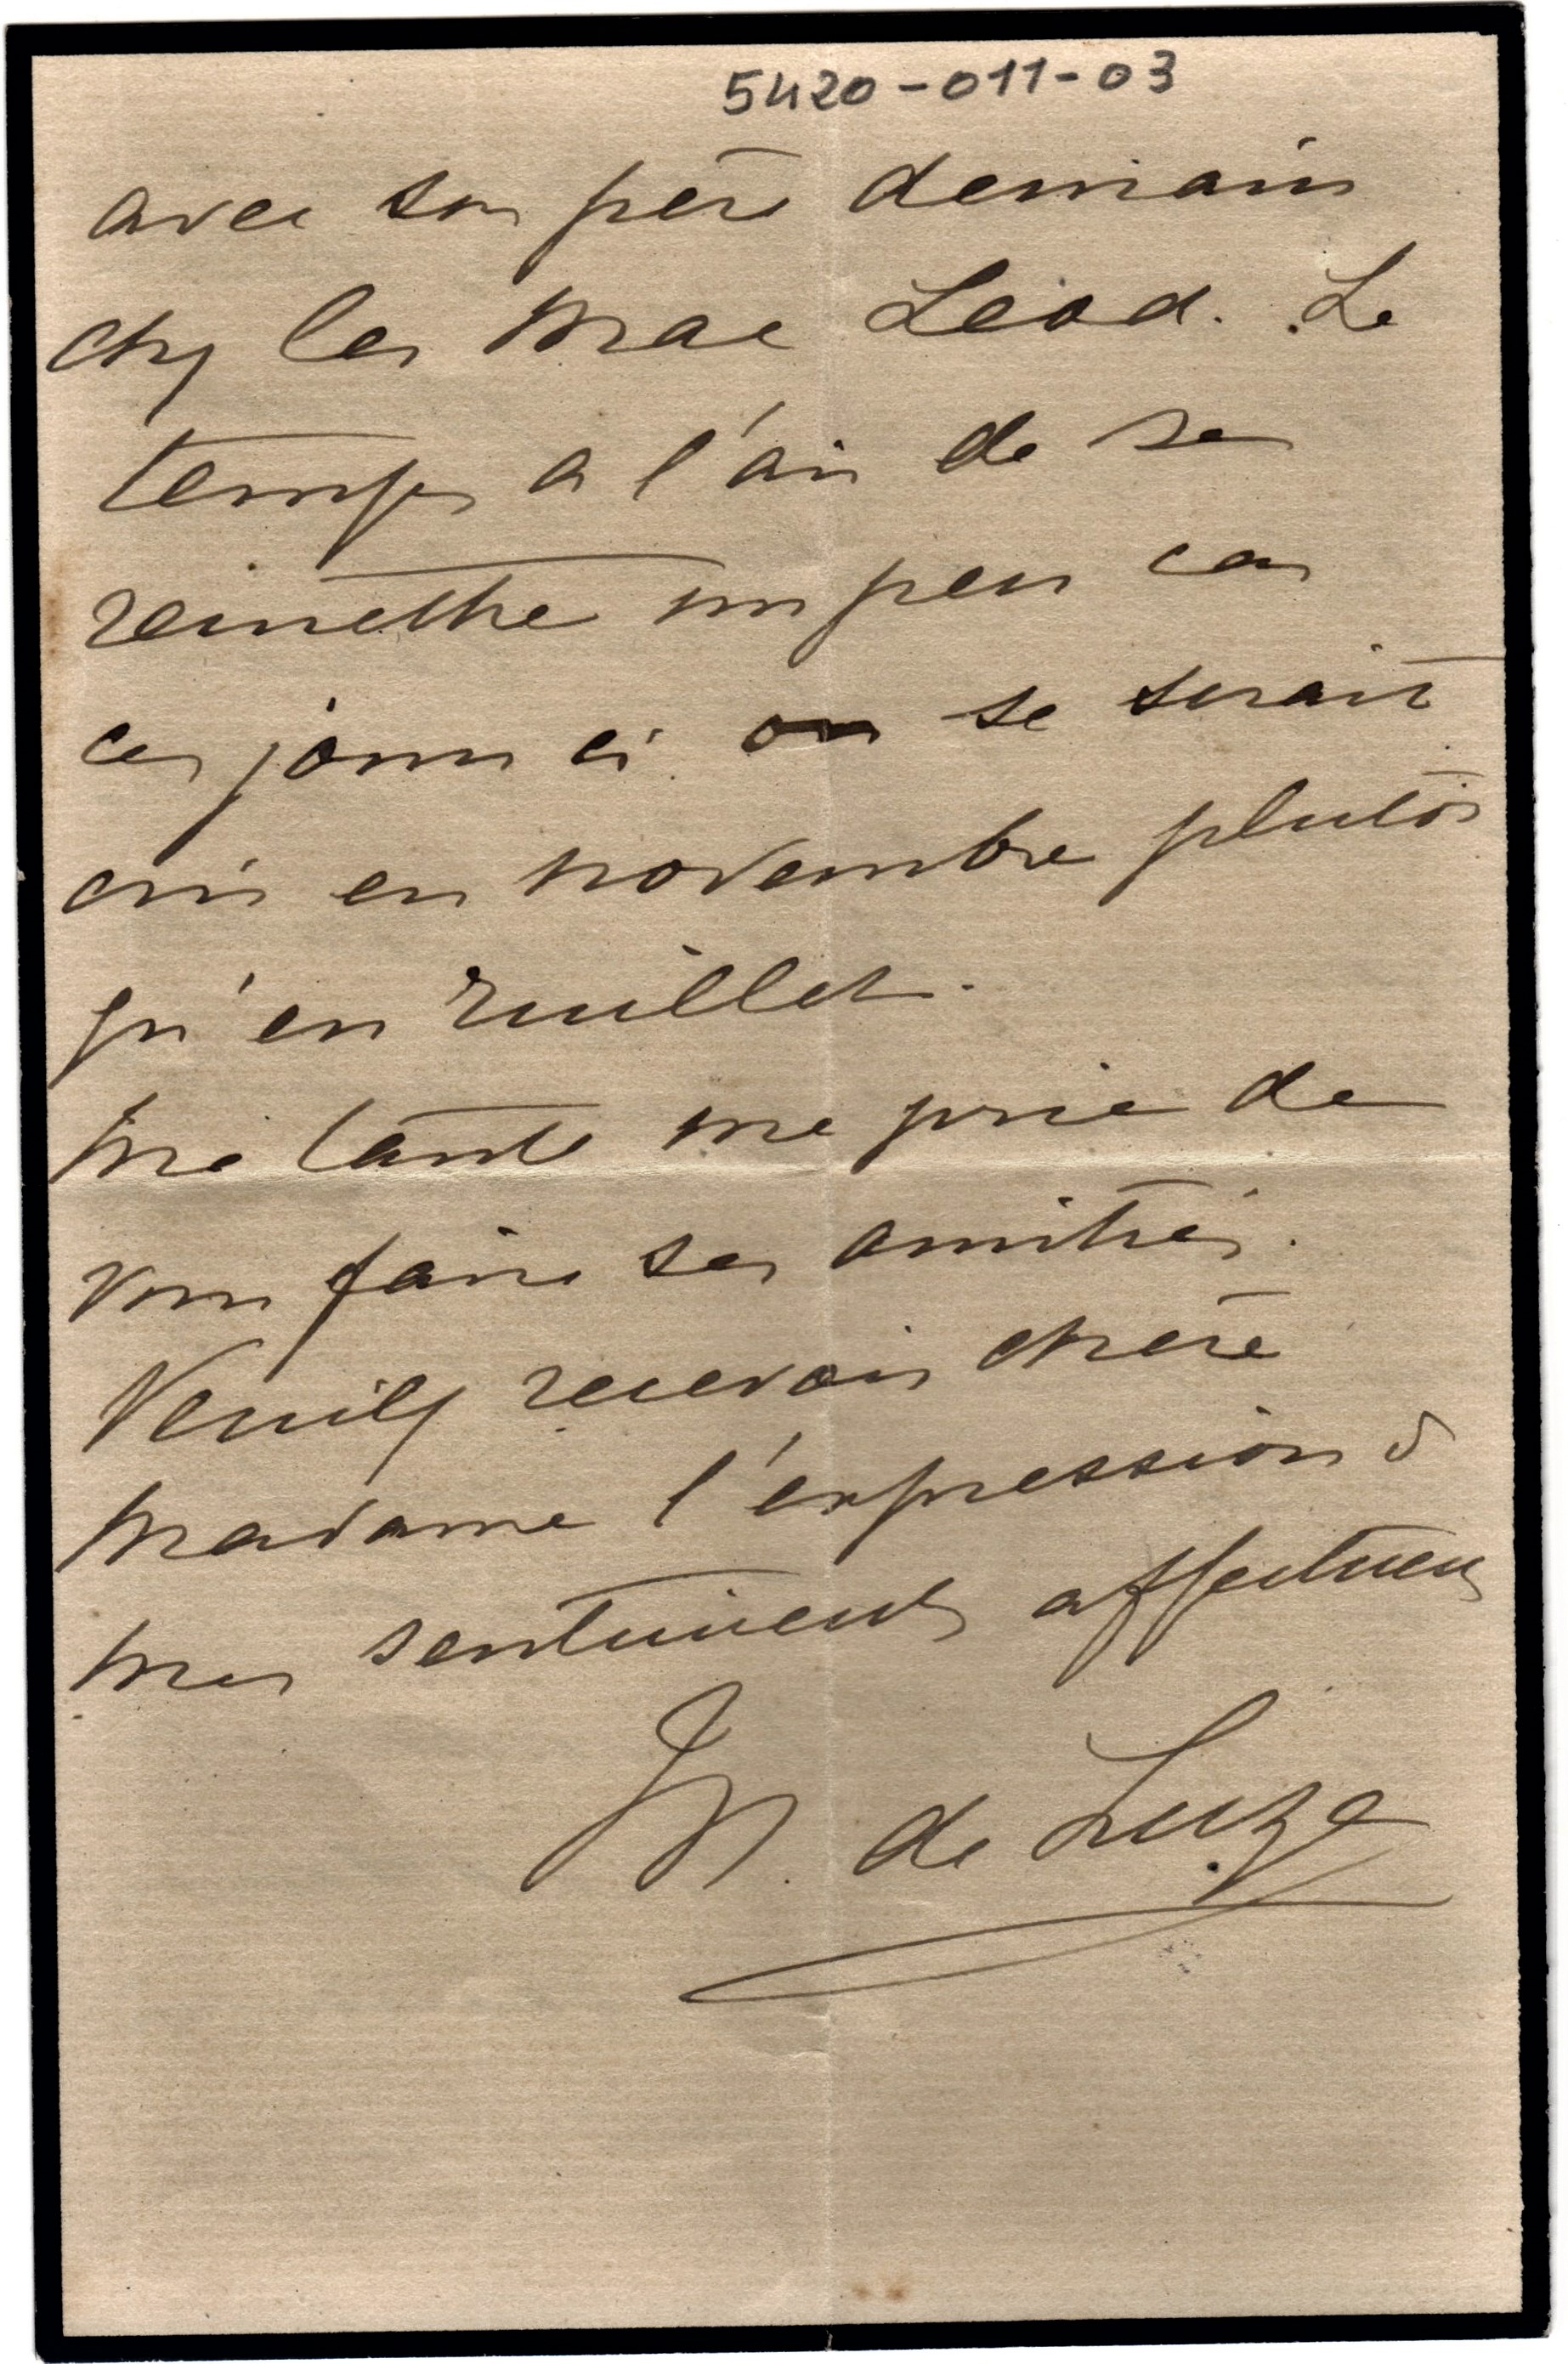 5420-011-03
avec son père demain
chez les Mac Leod. Le
temps a l'air de se
remettre un peu car
ces jours ci on se serait
cru en novembre plutôt
qu'en Juillet.
Ma tante me prie de
vous faire ses amitiés.
Veuillez recevoir chère
Madame l'expression d
mes sentiments affectueux
M. de Luze